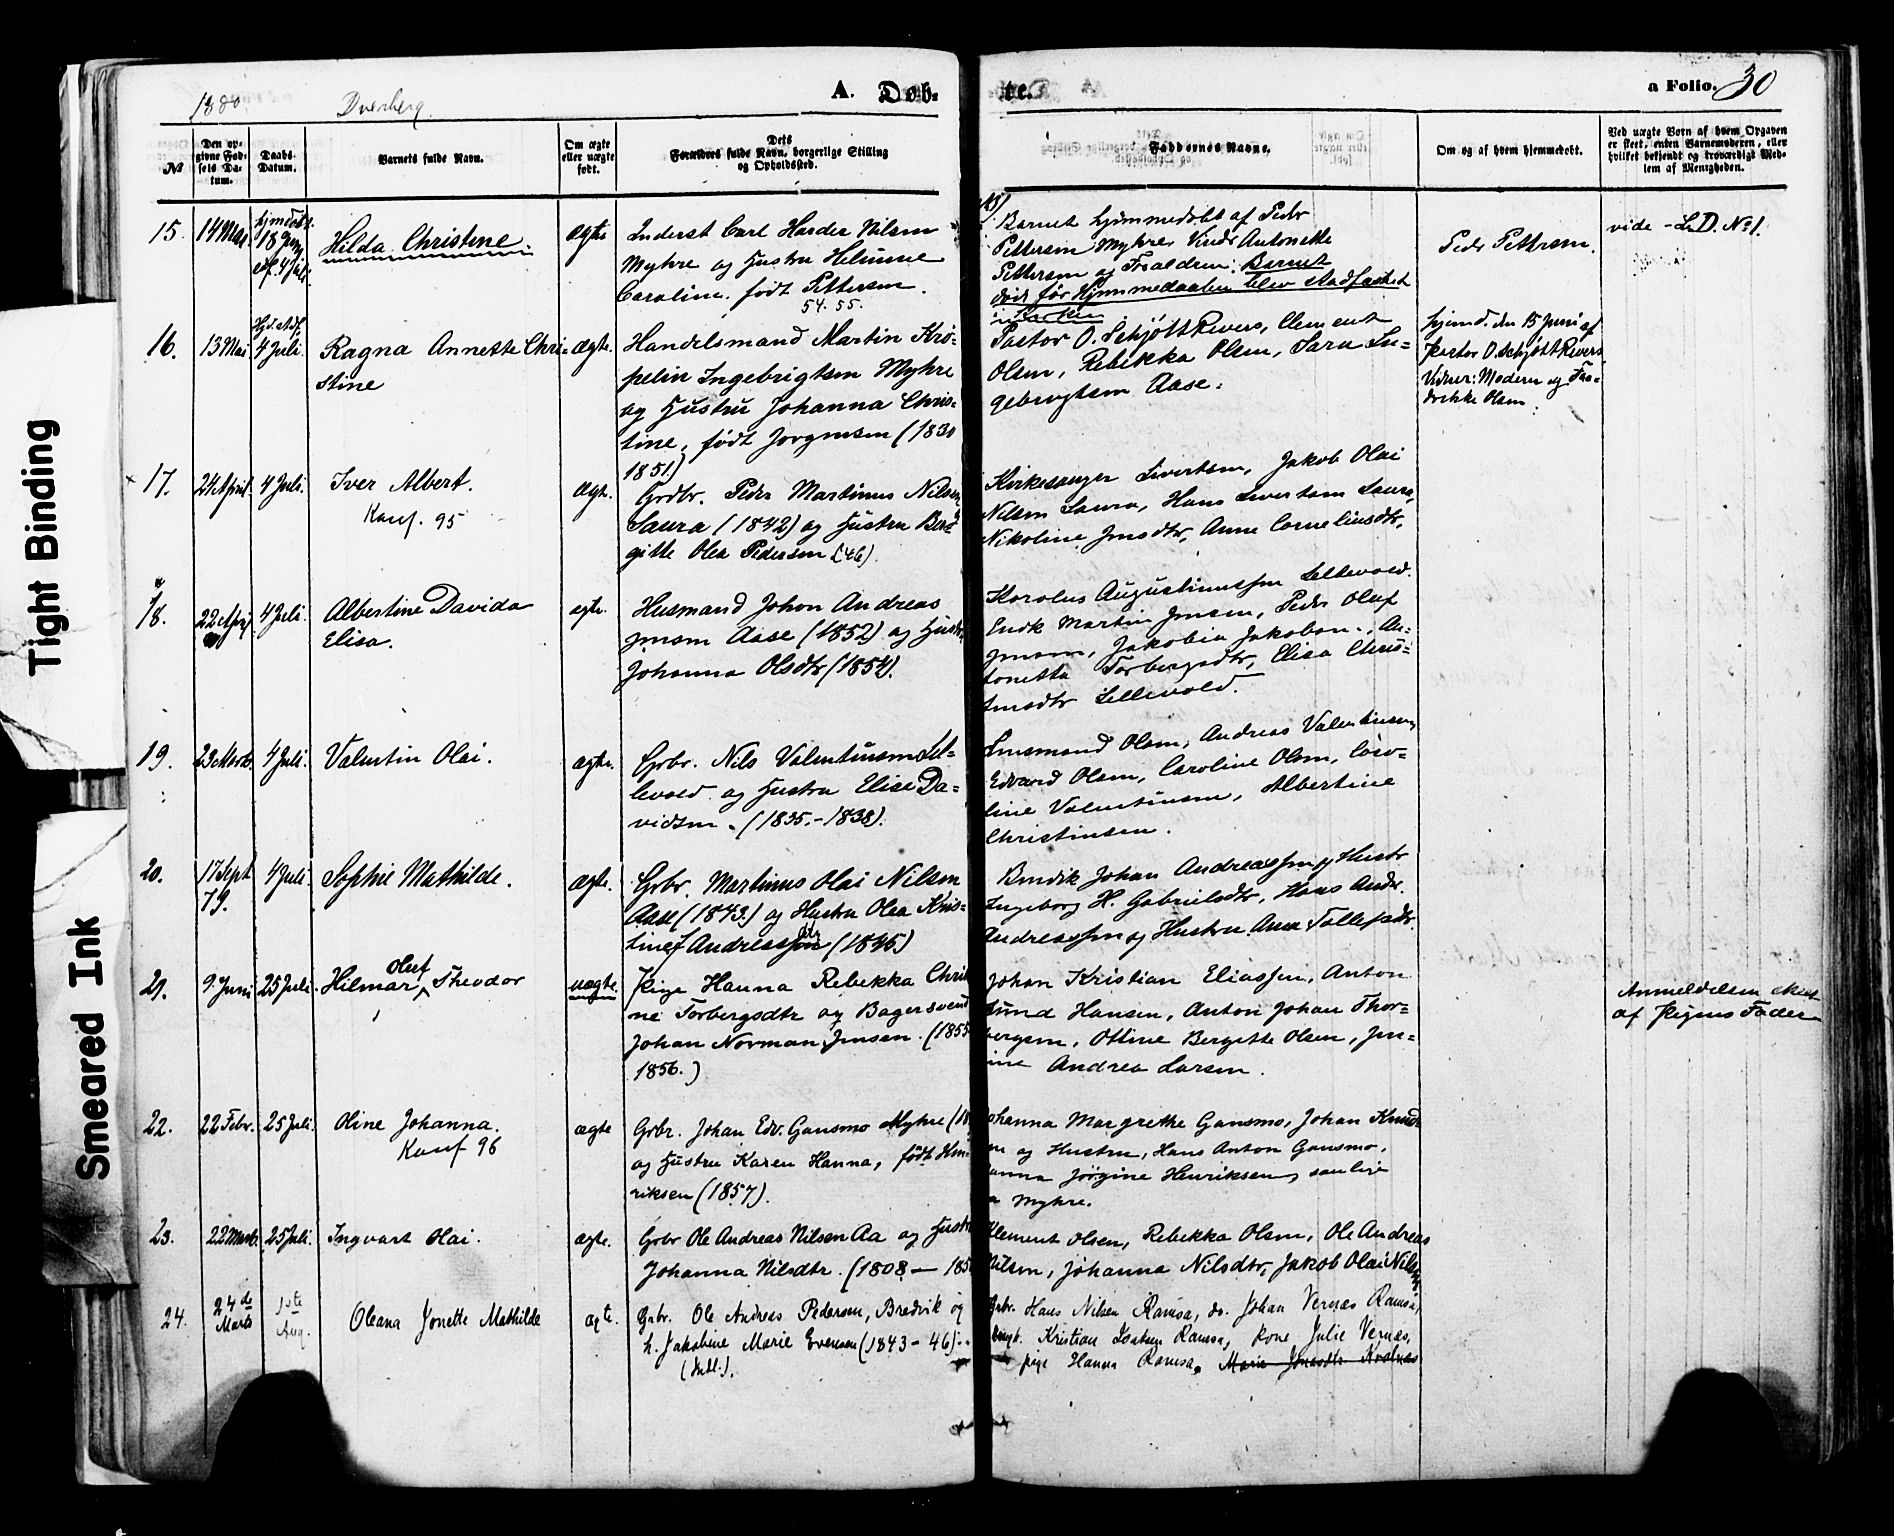 1880 Dverberg
A. Døb-
te.
a Folio. 30
№
Den op-
givne Fød-
sels Da-
tum.
Daabs-
Datum.
Barnets fulde Navn.
Om ægte
eller uægte
født.
Dets
Forældres fulde Navn, borgerlige Stilling
og Opholdssted.
Faddernes Navne.
Om og af hvem hjemmedøbt.
Ved uægte Børn af hvem Opgaven
er skeet, enten Barnemoderen, eller
hvilket bekjendt og troværdigt Med-
lem af Menigheden.
15. 14 Mai
hjemdøbt
18 Juni
4 Juli
Hilda Christine.
ægte
Inderst Carl Harder Nilsen
Myhre og Hustru Helmine
Caroline, født Pettersen.
54. 55.
15)
Barnet hjemmedøbt af Peder
Pettersen Myhre, Antonette
Pettersen og Forældrene. Barnet
døde før Hjemmedaaben blev stadfæstet
i Kirken
Peder Pettersen.
vide L. D. No 1.
16. 13 Mai
Hjd. stdf.
4 Juli
Ragna Annette Chri-
stine
ægte.
Handelsmand Martin Krø-
pelin Ingebrigtsen Myhre
og Hustru Johanna Chris-
tine, født Jørgensen (1830
1851)
Pastor O. Schjøtt Rivers, Clement
Olsen, Rebekka Olsen, Sara In-
gebrigtsen Aase.
hjemd. den 15 Juni af
Pastor O. Schjøtt Rivers
Vidner: Moderen og Fre-
drikke Olsen.
17. 24 April 4 Juli.
Iver Albert.
Konf. 95
ægte.
Grdbr. Peder Martinus Nilsen
Saura (1842) og Hustru Ber-
gitte Olea Pedersen (46).
Kirkesanger Sivertsen, Jakob Olai
Nilsen Saura, Hans Sivertsen Saura,
Nikoline Jensdtr, Anne Corneliusdtr.
18. 22 April 4 Juli.
Albertine Davida
Elisa.
ægte.
Husmand Johan Andreas
Jensen Aase (1852) og Hustr.
Johanna Olsdtr (1854).
Karolus Augustinussen Lellevold.
Erik Martin Jensen, Peder Oluf
Jensen, Jakobia Jakobsen, An-
tonetta Torbergsdtr, Elisa Chris-
tensdtr Lellevold.
19. 23 Marts. 4 Juli.
Valentin Olai.
ægte.
Grbr. Nils Valentinsen Lel-
levold og Hustru Elise Da-
vidsen. (1835.-1838).
Lensmand Olsen, Andreas Valentinsen,
Edvard Olsen, Caroline Olsen, Caro-
line Valentinsen, Albertine
Christensen.
20. 17 Sept
79.
4 Juli.
Sophie Mathilde.
ægte.
Grbr. Martinus Olai Nilsen
Aase (1843.) og Hustru Olea Kris-
tine f. Andreassdtr (1845)
Bendik Johan Andreassen og Hustr
Ingeborg H. Gabrielsdtr, Hans Andr.
Andreassen og Hustru Anne Tollefsdtr.
21. 9 Juni 25 Juli.
Hilmar Oluf Theodor
uægte.
Pige Hanna Rebekka Christi
ne Torbergsdtr og Bagersvend
Johan Norman Jensen. (1855
1856.)
Johan Kristian Eliassen, Anton
Lund Hansen, Anton Johan Thor-
bergsen, Ottine Bergitte Olsen, Jen-
sine Andrea Larsen.
Anmeldelsen skeet
af Pigens Fader
22. 22 Febr. 25 Juli.
Oline Johanna.
Konf 96
ægte
Grbr. Johan Edv. Gansmo Myhre (18
og Hustru Karen Hanna, født Hen-
riksen (1857).
Johanna Margrethe Gansmo, Johan Knud
og Hustru, Hans Anton Gansmo,
Jørgine Henriksen, samlige
Myhre.
23. 22 Marts. 25 Juli.
Ingvart Olai.
ægte.
Grbr Ole Andreas Nilsen Aa og Hustr
Johanna Nilsdtr. (1808 — 185
Klement Olsen, Rebekka Olsen, Ole Andreas
Nilsen, Johanna Nilsdtr, Jakob Olai Nilsen
24. 24de
Marts
1ste
Aug.
Oleana Jonette Mathilde
ægte.
Grbr. Ole Andreas Pedersen, Bredvik og
h. Jakobine Marie Evensen (1843 - 46)
Grbr. Hans Nilsen Ramsa, do. Johan Vernæs Ramsa,
Kristian Isaksen Ramsa, Kone Julie Vernæs,
pige Hanna Ramsa, Marie Jonsdtr Kvalnæs
Tight Binding
Smeared Ink